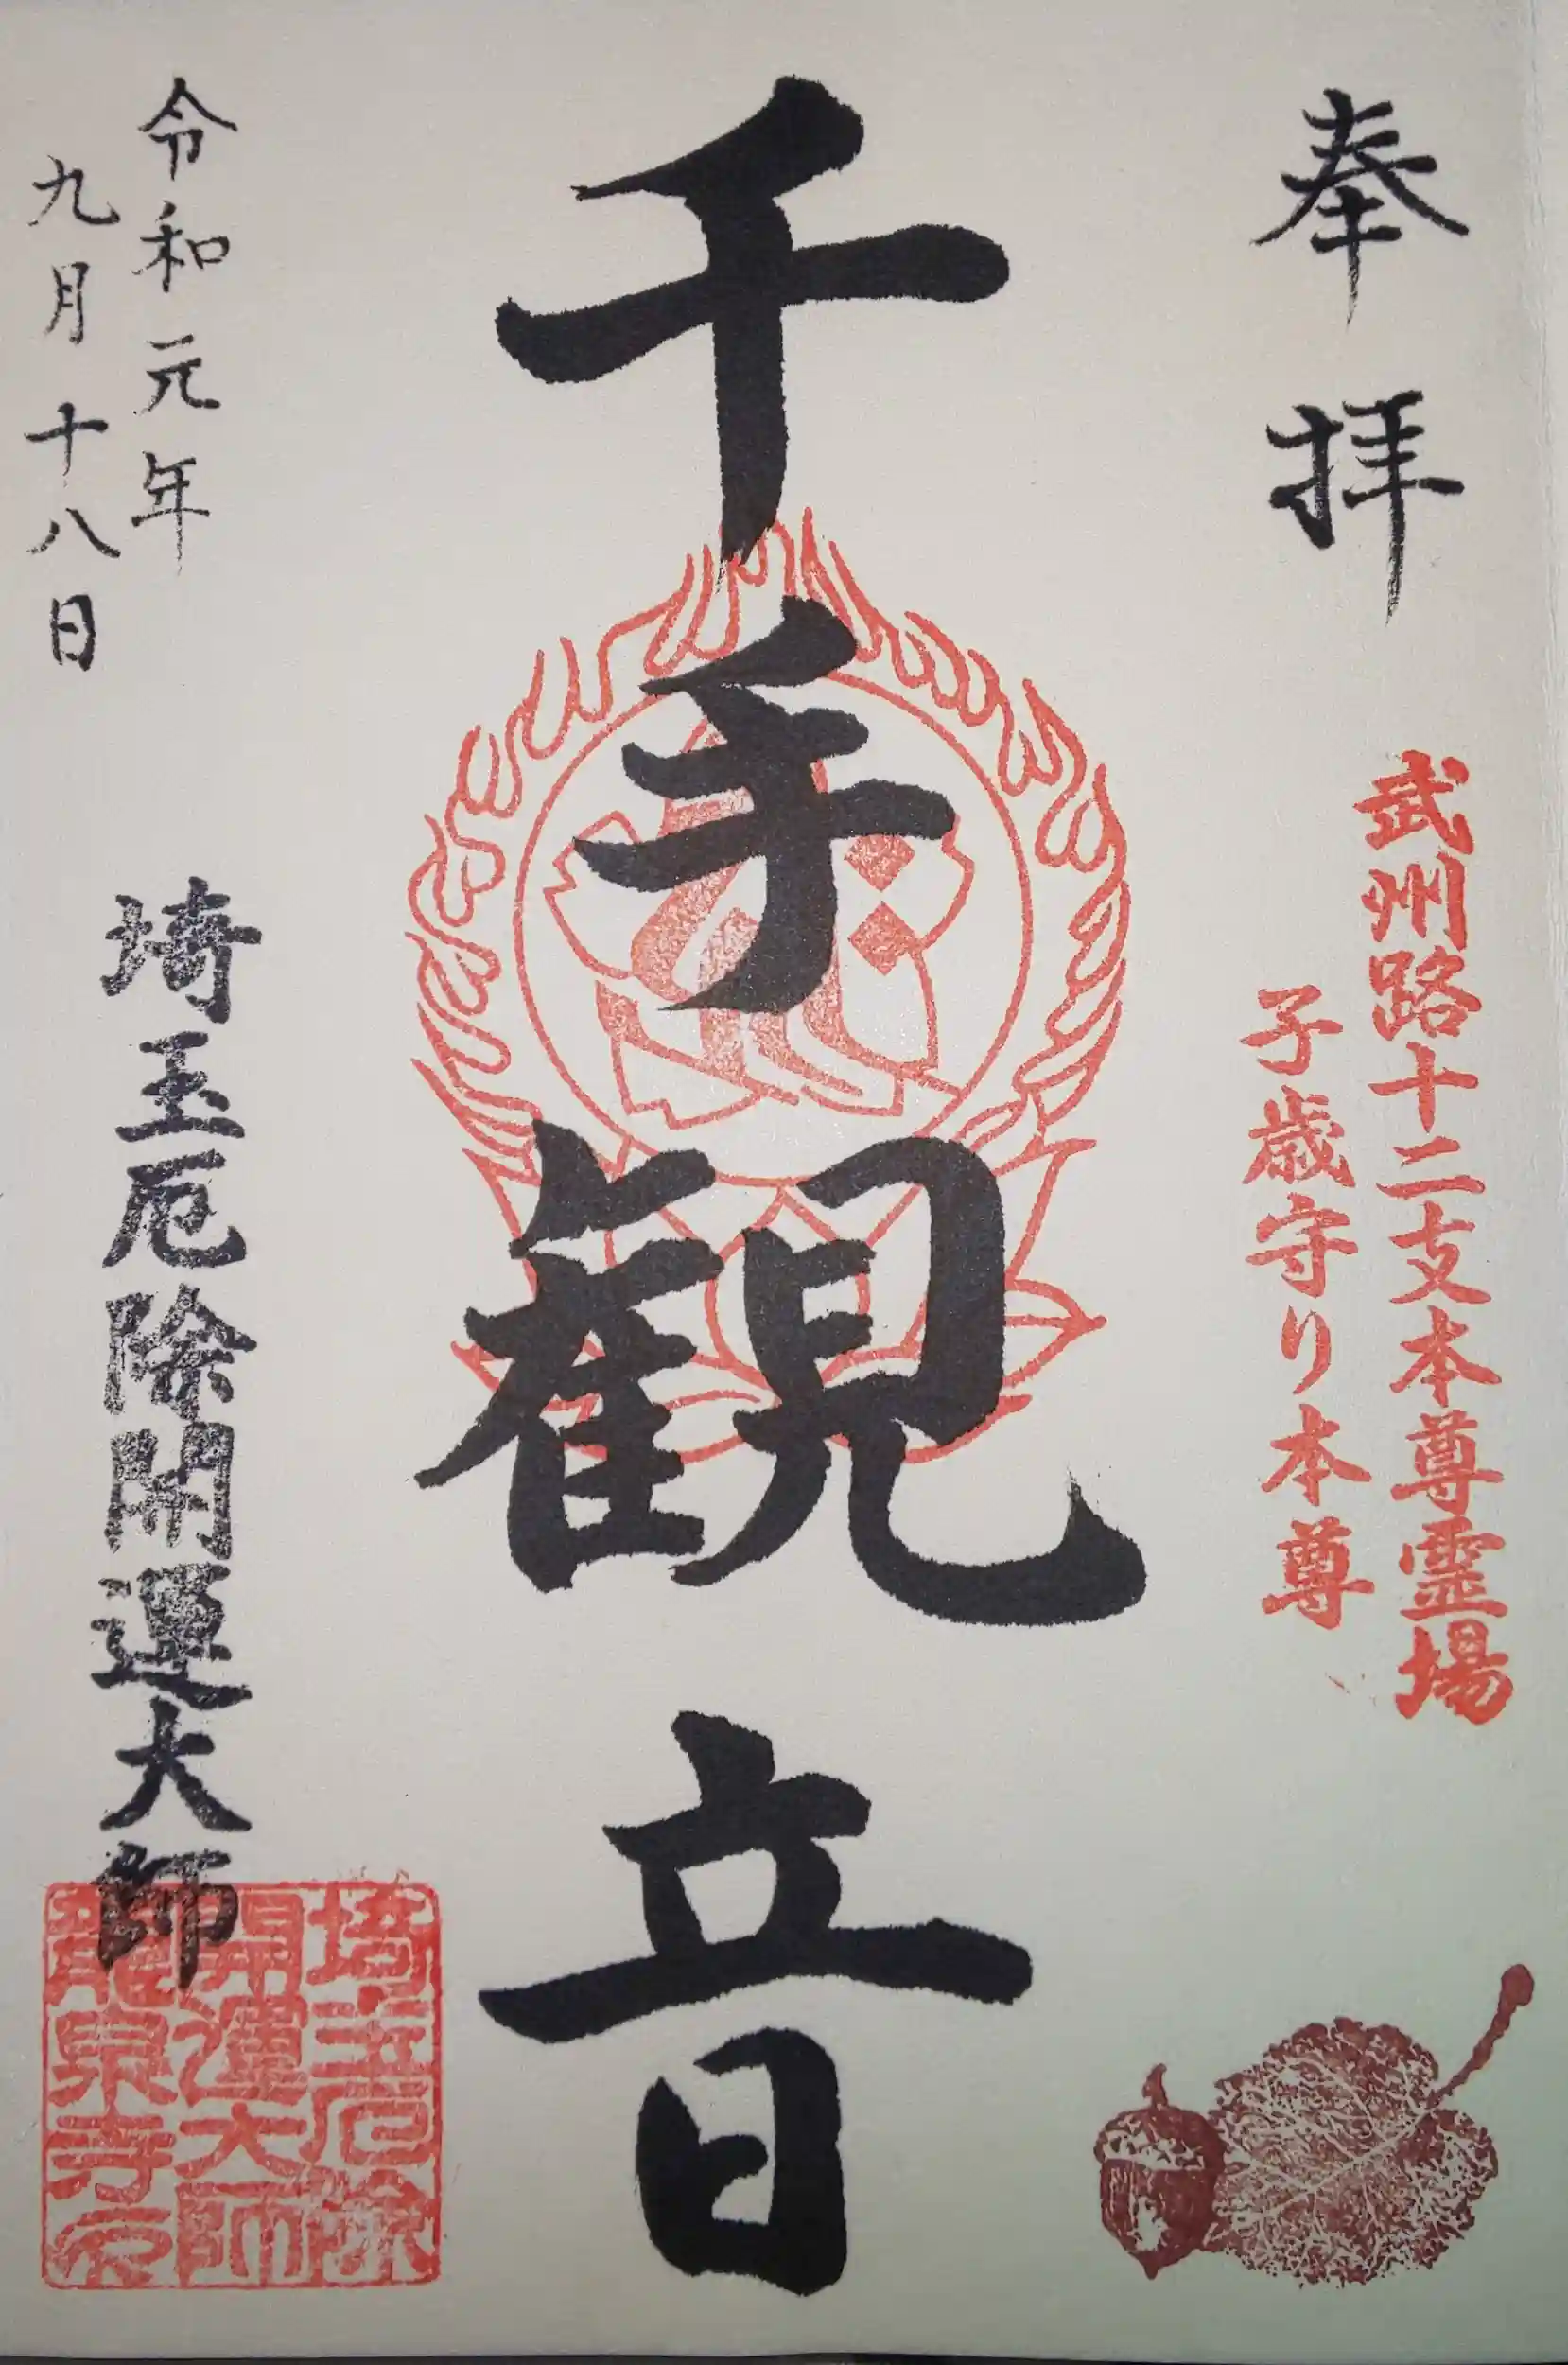 奉拝
武州路十二支本尊霊場
子歳守り本尊
千手観音
令和元年
九月十八日
埼玉厄除開運大師
埼玉厄除
開運大師
龍泉寺印